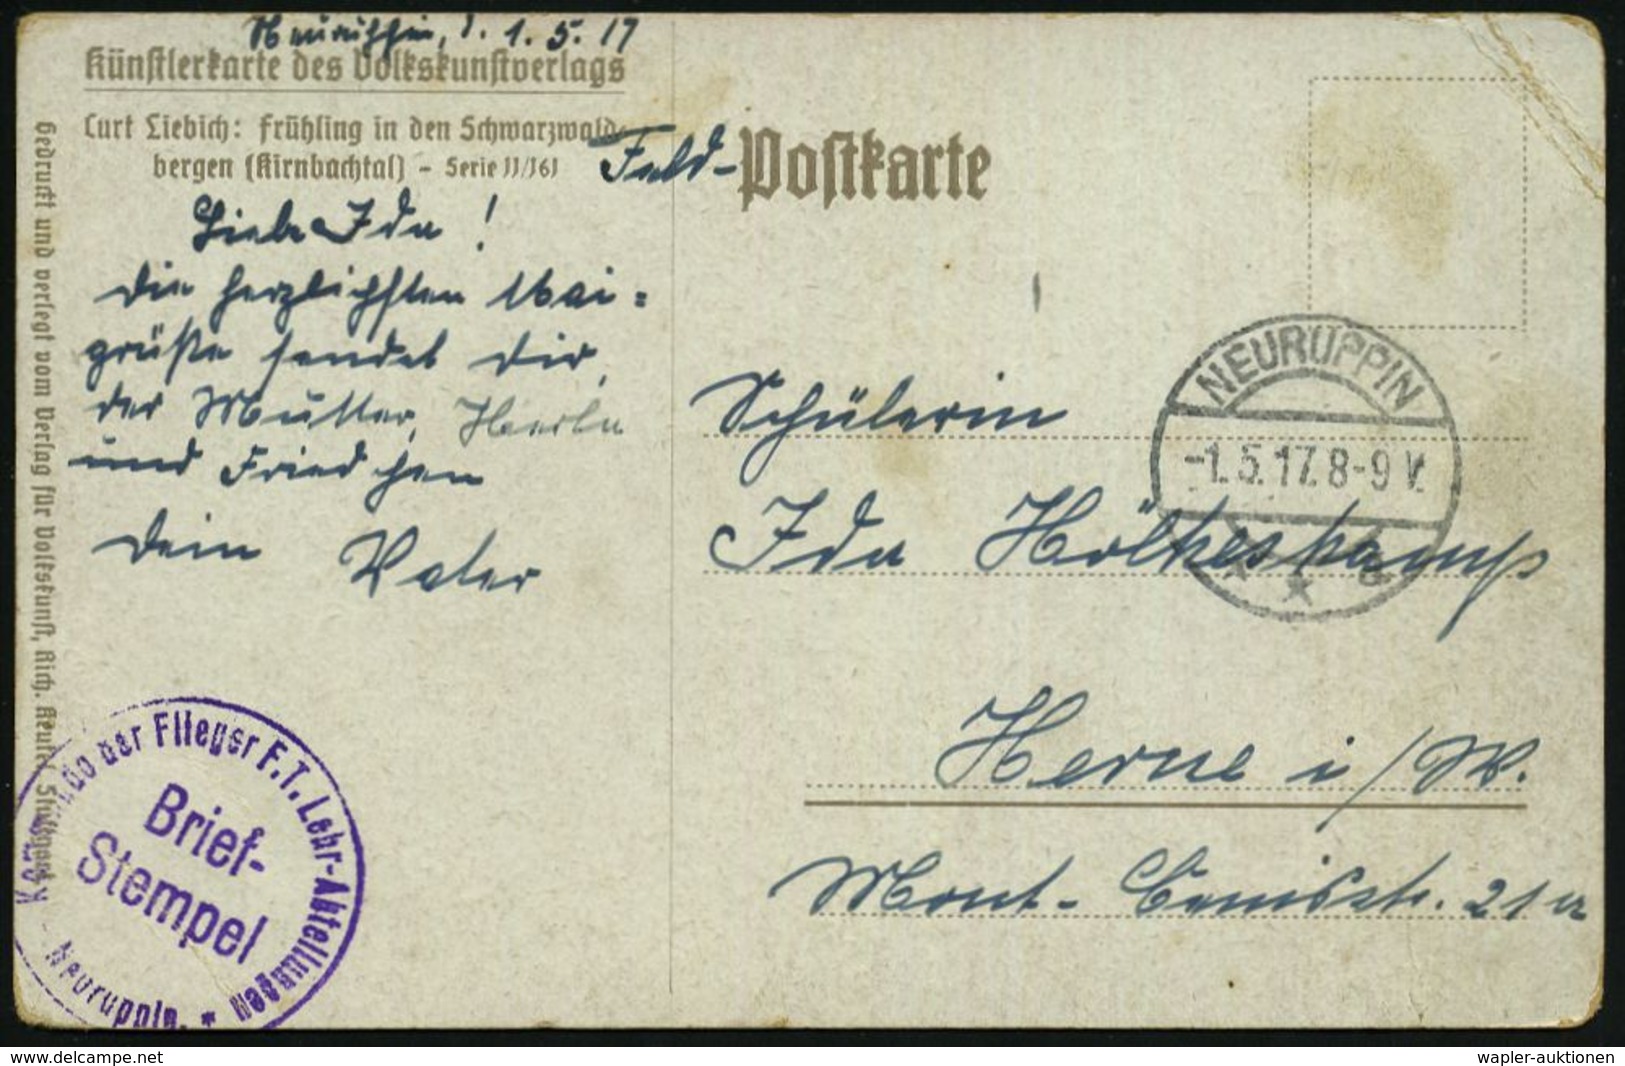 Neuruppin, d. 1. 5. 17
Künstlerkarte des Volkskunstverlags
Curt Liebich: Frühling in den Schwarzwald-
bergen (Kirnbachtal) - Serie 11/161
Gedruckt und verlegt vom Verlag für Volkskunst, Rich. Keutel, Stuttgart
Liebe Ida!
die herzlichsten Mai=
grüße sendet dir,
der Mutter,
und Friedchen
dein Vater
Kommando der Flieger F.T. Lehr-Abteilungen
Brief-
Stempel
* Neuruppin.
Feld-Postkarte
NEURUPPIN
-1.5.17.8-9 V.
* * c
Schülerin
Ida Hölkeskamp
Herne i/W.
Mont-Cenisstr. 21a
www.delcampe.net
wapler-auktionen